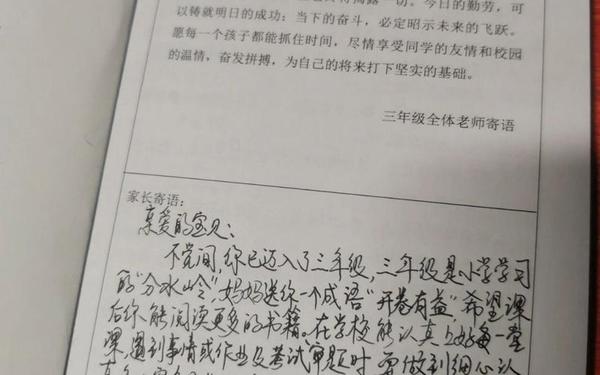 今日的勤劳，可
以铸就明日的成功；当下的奋斗，必定昭示未来的飞跃。
愿每一个孩子都能抓住时间，尽情享受同学的友情和校园
的温情，奋发拼搏，为自己的将来打下坚实的基础。
三年级全体老师寄语
家长寄语：
亲爱的宝贝：
不觉间，你已迈入了三年级，三年级是小学学习
的“分水岭”，妈妈送你一个成语“开卷有益”，希望课
后你能阅读更多的书籍。在学校能认真上好每一堂
课，遇到事情或作业及考试审题时，要做到细心认